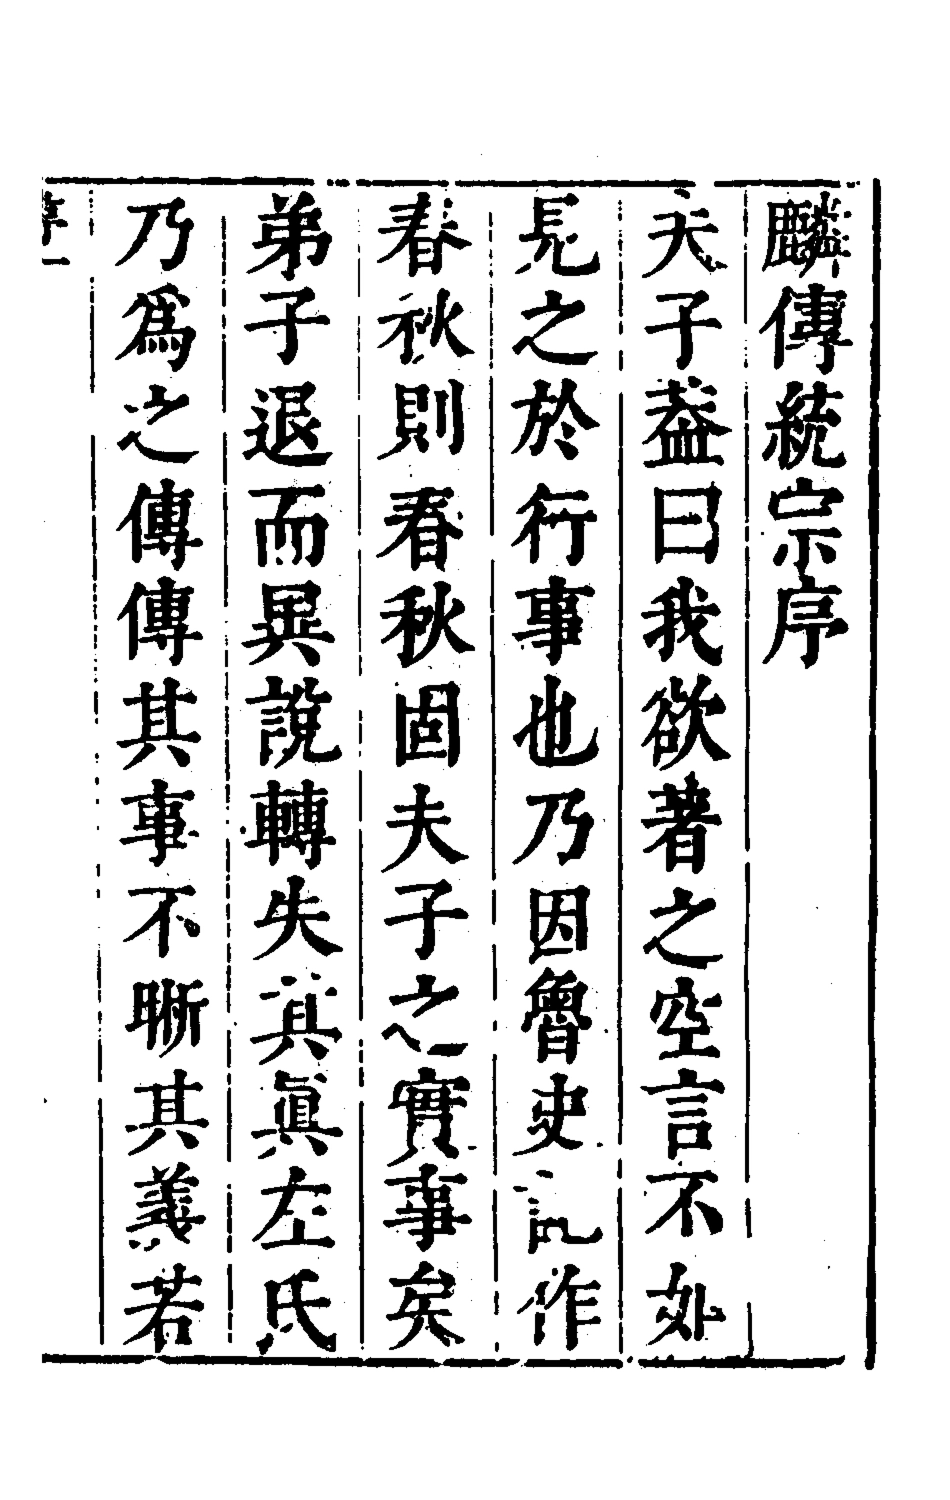 麟傳統宗序
夫子葢曰我欲著之空言不如
見之於行事也乃因魯史記作
春秋則春秋固夫子之實事矣
弟子退而異說轉失其眞左氏
乃爲之傳傳其事不晣其義若
序一